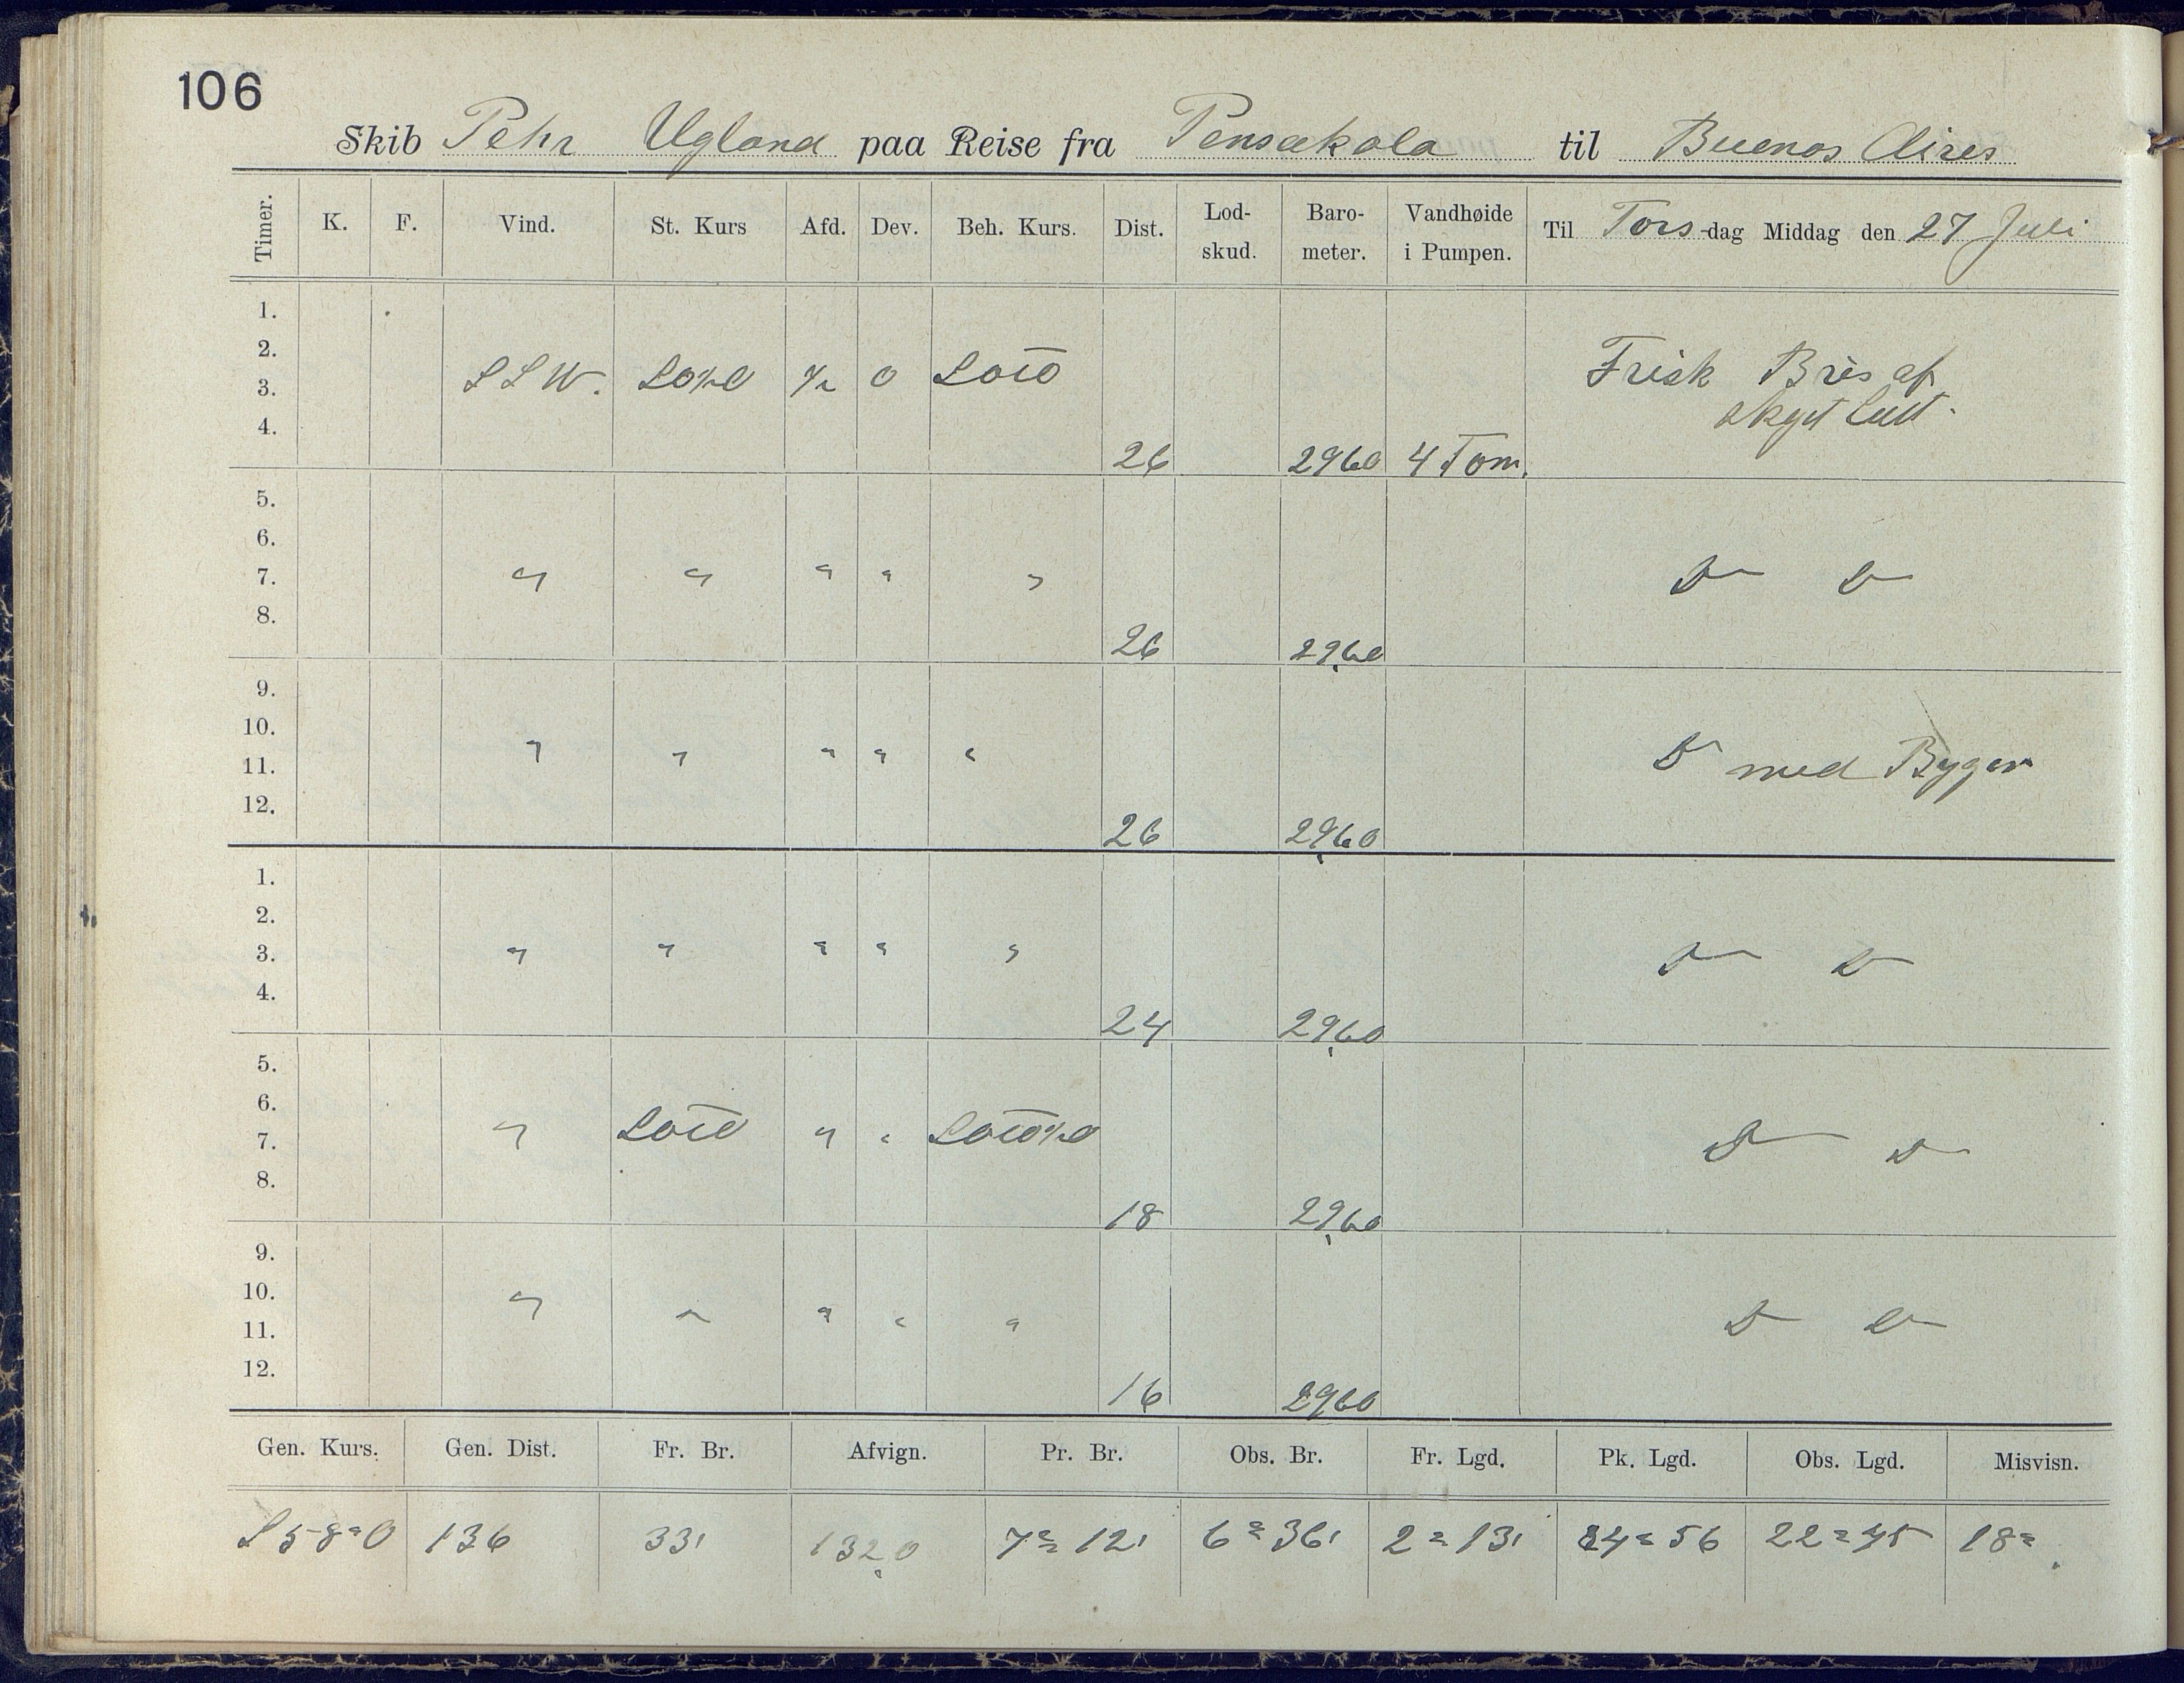 106
Skib Pehr Ugland paa Reise fra Pensakola til Buenos Aires
Timer. K. F. Vind. St. Kurs Afd. Dev. Beh. Kurs. Dist. Lod-skud. Baro-meter. Vandhøide i Pumpen. Til Tors-dag Middag den 27 Juli
1.
2.
3. SSW. 0 Frisk Bris af
4. skyet luft.
26 2960 4 Tom.
5.
6.
7. " " " " "
8.
26 29,60
9.
10.
11. " " " " " Do med Byger
12.
26 29,60
1.
2.
3. " " " " "
4.
24 29,60
5.
6.
7. " " "
8.
18 29,60
9.
10.
11. " " " " "
12.
16 2960
Gen. Kurs. Gen. Dist. Fr. Br. Afvign. Pr. Br. Obs. Br. Fr. Lgd. Pk. Lgd. Obs. Lgd. Misvisn.
S 58° O 136 33' 132,0 7° 12' 6° 36' 2° 13' 24° 56 22° 45 18°